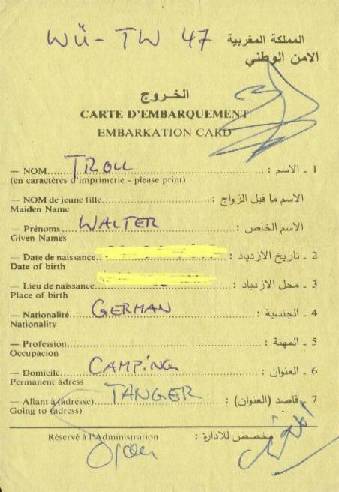 WÜ - TW 47 المملكة المغربية
الامن الوطني
الخروج
CARTE D'EMBARQUEMENT
EMBARKATION CARD
— NOM TROLL 1 - الاسم :
(en caractères d'imprimerie - please print)
— NOM de jeune fille الاسم ما قبل الزواج :
Maiden Name
— Prénoms WALTER الاسم الشخصي :
Given Names
— Date de naissance 2 - تاريخ الازدياد :
Date of birth
— Lieu de naissance 3 - محل الازدياد :
Place of birth
— Nationalité GERMAN 4 - الجنسية :
Nationality
— Profession 5 - المهنة :
Occupacion
— Domicile CAMPING 6 - العنوان :
Permanent adress
— Allant à (adresse) TANGER 7 - قاصد (العنوان) :
Going to (adress)
Réservé à l'Administration مخصص للادارة :